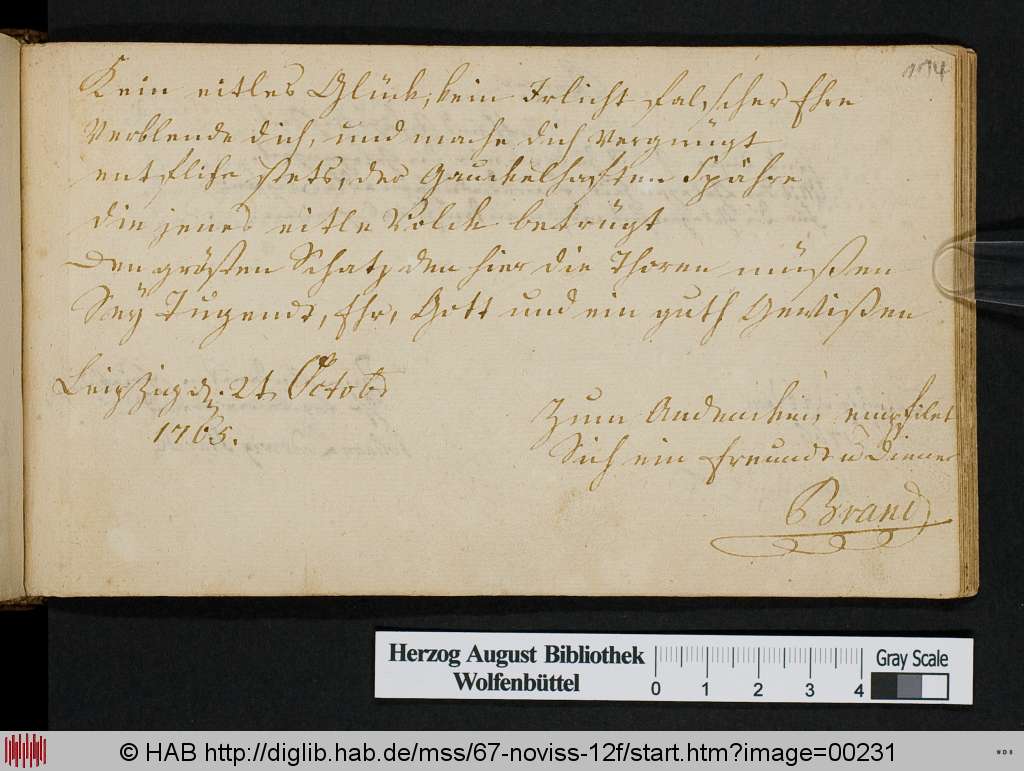 114
Kein eitles Glück, kein Irlicht falscher Ehre
Verblende dich, und mache dich Vergnügt
entfliehe stets, der Gauckelhafften Spähre
die jenes eitle Volck betrügt
Den größten Schatz den hier die Thoren müßen
Sey Tugendt, Ehr, Gott und ein guth Gewißen
Leipzig d. 21 Octob
1765.
Zum Andencken empfilet
Sich ein Freundt u Diener
Brand
Herzog August Bibliothek
Wolfenbüttel
0 1 2 3 4
Gray Scale
© HAB http://diglib.hab.de/mss/67-noviss-12f/start.htm?image=00231
WDB